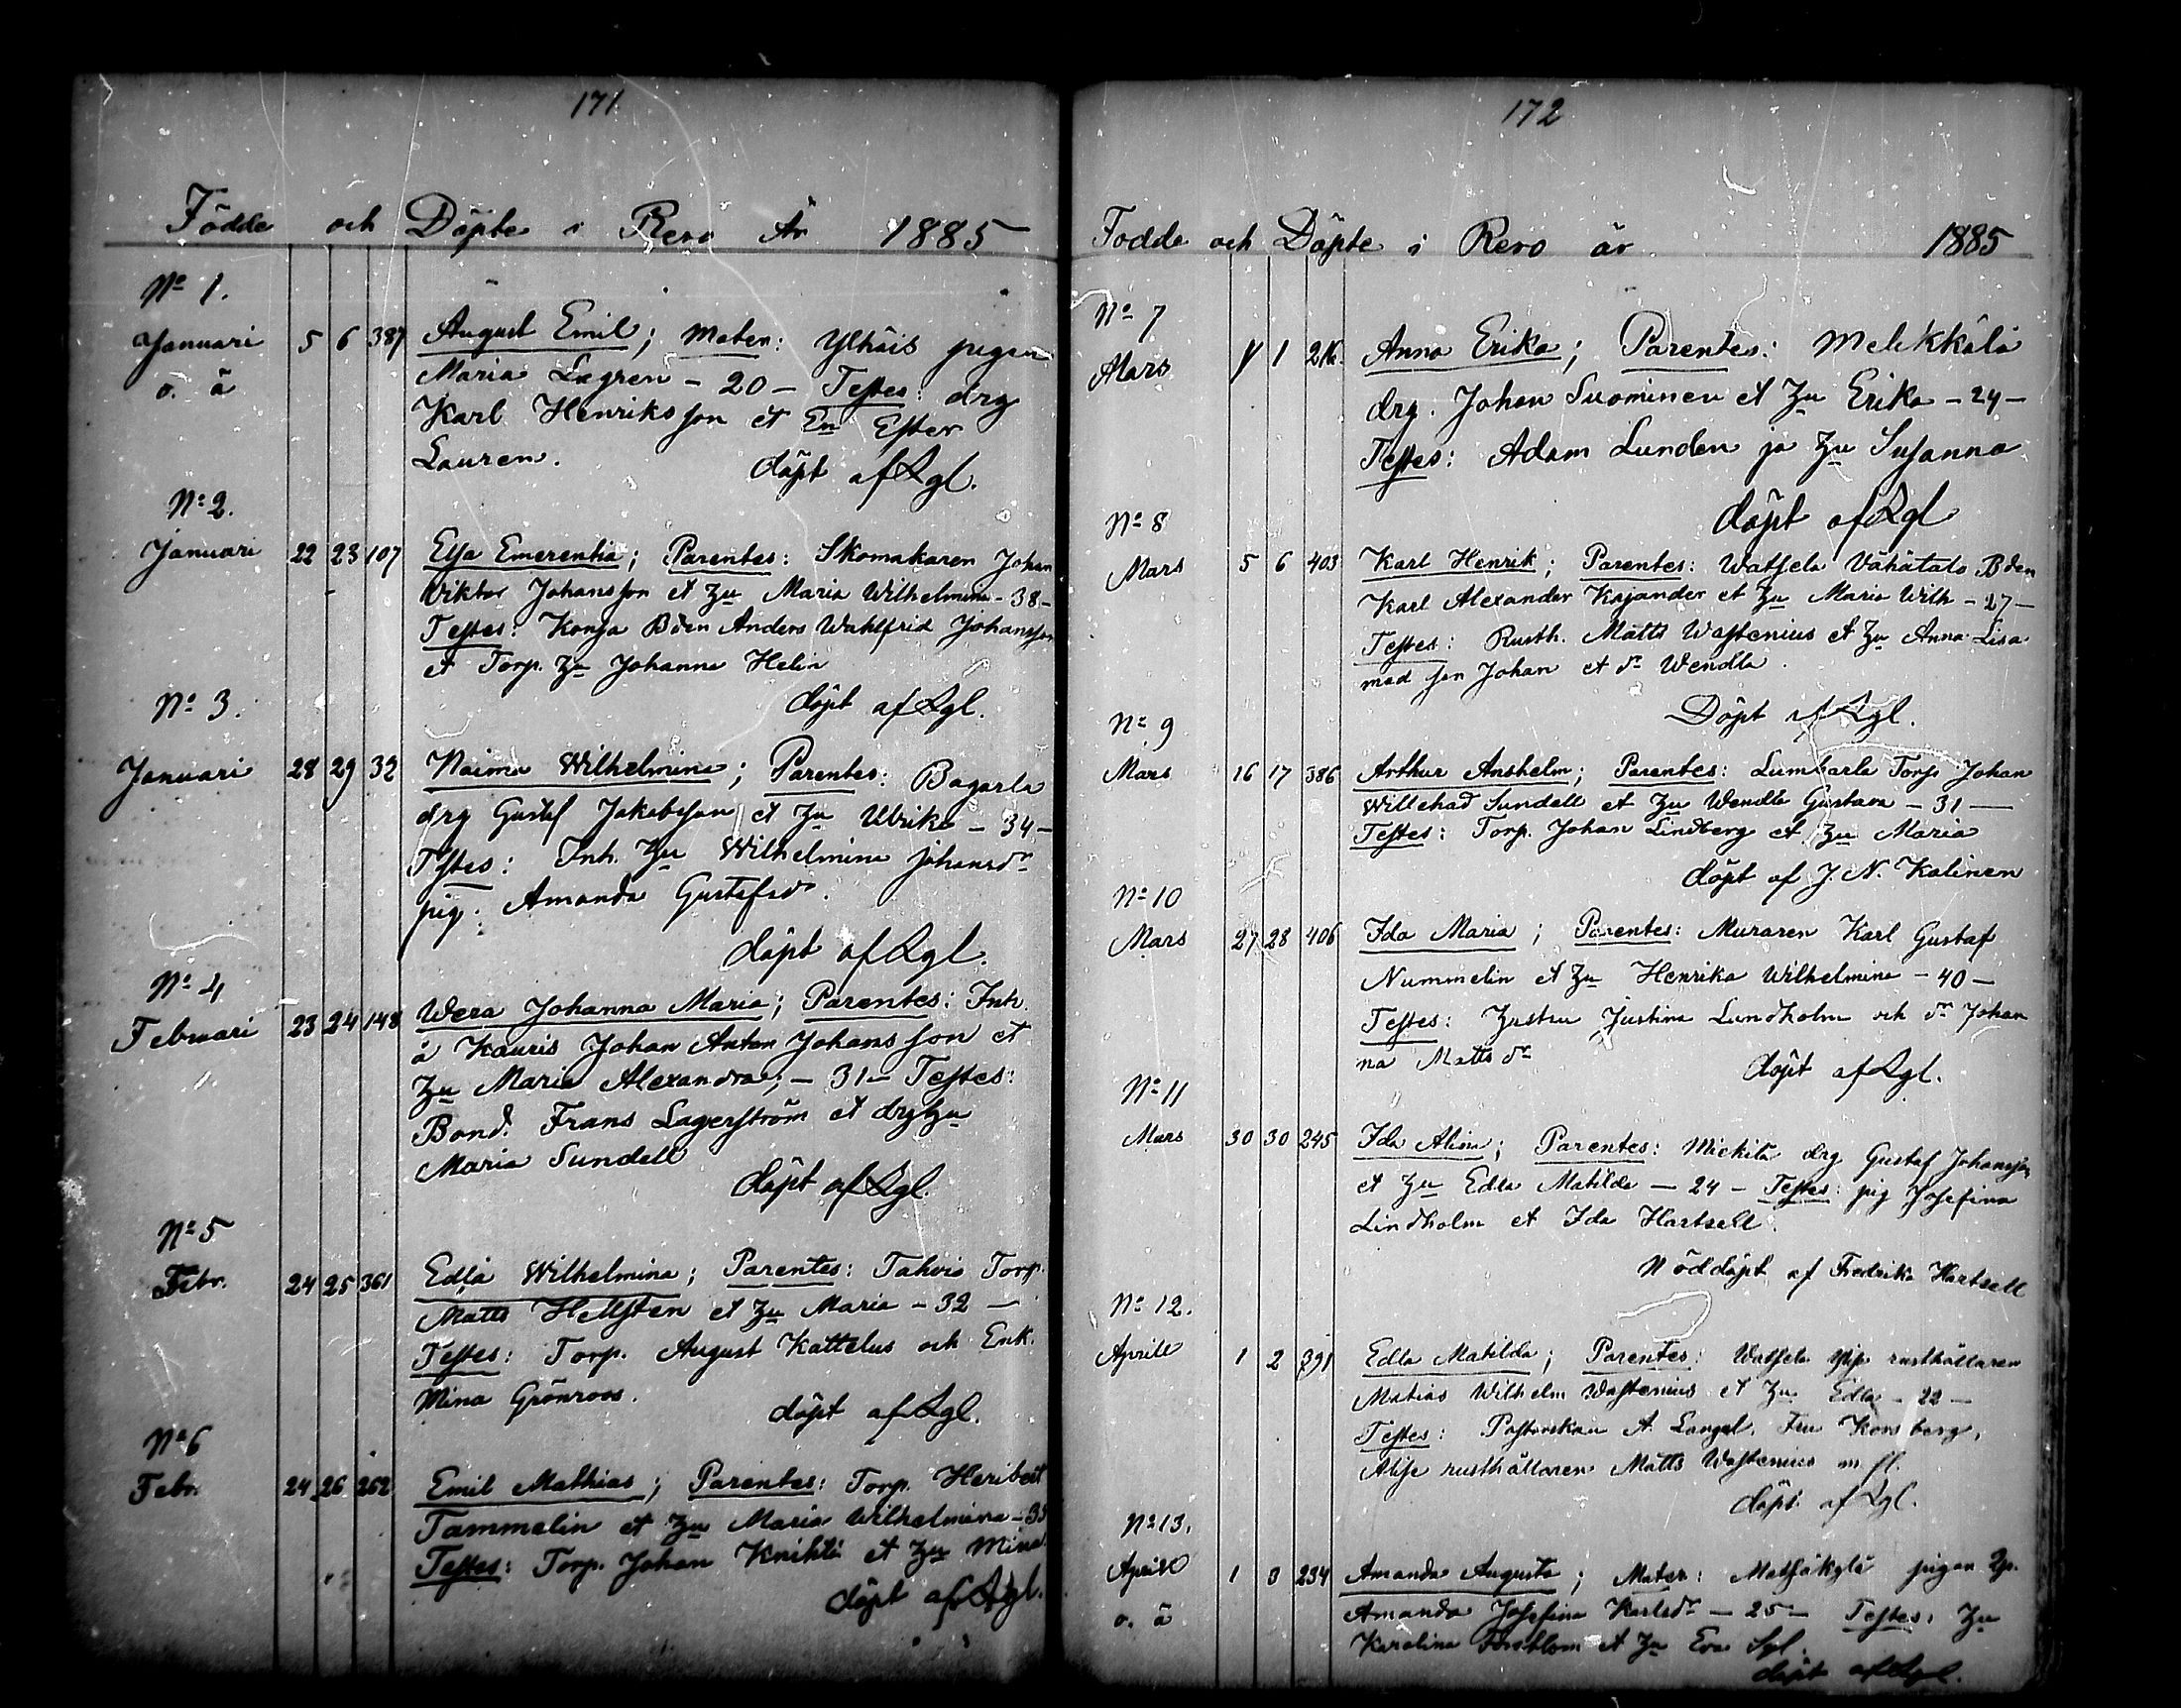 171
Födde och Döpte i Revo År 1885
No 1.
Januari 5 6 387 August Emil; Mater: Yltöis pigan
o. ä Maria Legren - 20 - Testes: drg
Karl Henriksson et En Ester
Lauren.
döpt af Lgl.
No 2.
Januari 22 23 107 Elsa Emerentia; Parentes: Skomakaren Johan
Viktor Johansson et Hu Maria Wilhelmina - 38 -
Testes: Konja Bden Anders Wahlfrid Johansson
et Torp. Hu Johanna Helin
döpt af Lgl.
No 3.
Januari 28 29 32 Naima Wilhelmina; Parentes: Bagarla
drg Gustaf Jakobsson et Hu Ulrika - 34 -
Testes: Inh. Hu Wilhelmina Johansdr
pig. Amanda Gustafsdr.
döpt af Lgl.
No 4
Februari 23 24 148 Wera Johanna Maria; Parentes: Inh.
å Kauris Johan Anton Johansson et
Hu Maria Alexandra; - 31 - Testes:
Bond. Frans Lagerström et drghu
Maria Sundell
döpt af Lgl.
No 5
Febr. 24 25 361 Edla Wilhelmina; Parentes: Tahvio Torp.
Matts Hellsten et Hu Maria - 32 -
Testes: Torp. August Kattelus och Enk.
Mina Grönroos.
döpt af Lgl.
No 6
Febr. 24 26 262 Emil Mathias; Parentes: Torp. Heribert
Tammelin et Hu Maria Wilhelmina -
Testes: Torp. Johan Knihtä et Hu Mina.
döpt af Lgl.
172
Födde och Döpte i Revo år 1885
No 7
Mars 1 1 216 Anna Erika; Parentes: Melkkälä
drg. Johan Suominen et Hu Erika - 24 -
Testes: Adam Lunden ja Hu Susanna
döpt af Lgl
No 8
Mars 5 6 403 Karl Henrik; Parentes: Watsela Vähätalo Bden
Karl Alexander Kajander et Hu Maria Wilh - 27 -
Testes: Rusth. Matts Wastenius et Hu Anna Lisa
med son Johan et dr Wendla.
Döpt af Lgl.
No 9
Mars 16 17 386 Arthur Anshelm; Parentes: Lumbarla Torp. Johan
Willehad Sundell et Hu Wendla Gustava - 31 -
Testes: Torp. Johan Lindberg et Hu Maria
döpt af J. N. Kalinen
No 10
Mars 27 28 406 Ida Maria; Parentes: Muraren Karl Gustaf
Nummelin et Hu Henrika Wilhelmina - 40 -
Testes: Hustru Justina Lundholm och dr Johan
na Matts dr
döpt af Lgl.
No 11
Mars 30 30 245 Ida Alina; Parentes: Mickilä drg Gustaf Johansson
et Hu Edla Matilda - 24 - Testes: pig Josefina
Lindholm et Ida Hartsell.
Nöddöpt af Fredrika Hartsell
No 12.
Aprill 1 2 391 Edla Matilda; Parentes: Watsela rusthållaren
Matias Wilhelm Wastenius et Hu Edla - 22 -
Testes: Pastorskan A. Langel. Fru Kornberg,
rusthållaren Matts Wastenius m. fl.
döpt af Lgl.
No 13.
Aprill 1 3 234 Amanda Augusta; Mater: Matsäkylä pigan
o. ä Amanda Josefina Karlsdr - 25 - Testes: Hu
Karolina Forsblom et Hu Eva
döpt af Lgl.